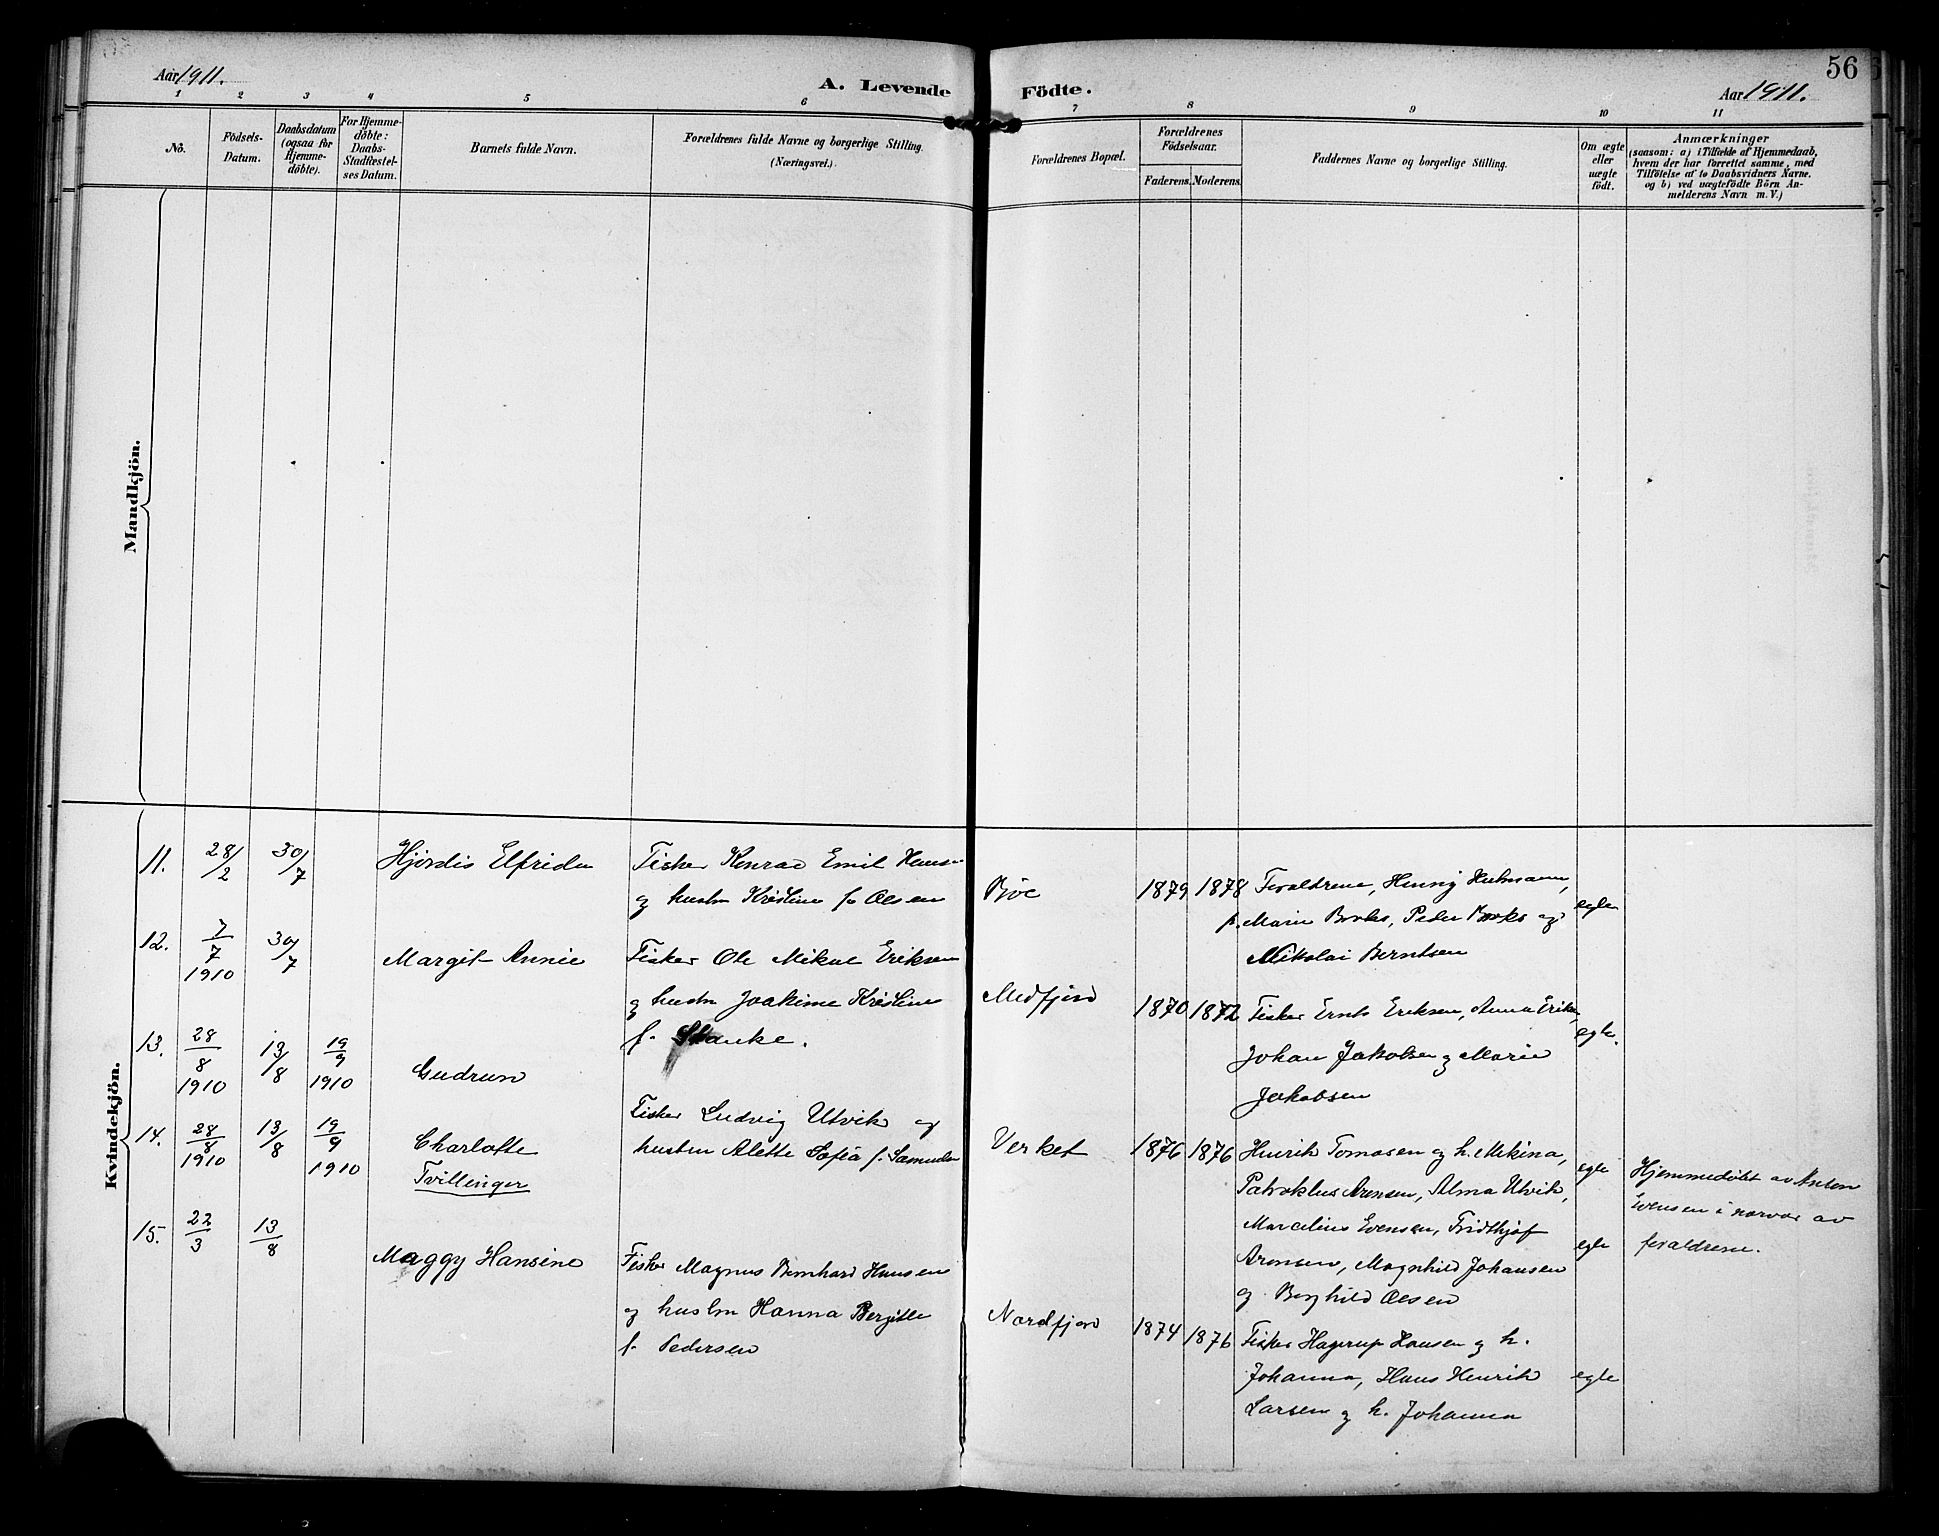 56
Aar 1911.
A. Levende Födte.
Aar 1911.
1 2 3 4 5 6 7 8 9 10 11
No.
Födsels-
Datum.
Daabsdatum
(ogsaa for
Hjemme-
döbte).
For Hjemme-
döbte:
Daabs-
Stadfæstel-
ses Datum.
Barnets fulde Navn.
Forældrenes fulde Navne og borgerlige Stilling.
(Næringsvei.)
Forældrenes Bopæl.
Forældrenes
Födselsaar.
Faderens. Moderens.
Faddernes Navne og borgerlige Stilling.
Om ægte
eller
uægte
födt.
Anmærkninger
(saasom: a) i Tilfælde af Hjemmedaab,
hvem der har forrettet samme, med
Tilföielse af to Daabsvidners Navne.
og b) ved uægtefödte Börn An-
melderens Navn m. V.)
Mandkjön.
Kvindekjön.
11. 28/2 30/7
Hjördis Elfrida
Fisker Konrad Emil Hansen
og hustru Kristine f. Olsen
Böe
1879 1878
Foraldrene, Henrij
p. Marie Broks, Peder Broks og
Nikolai Berntsen
egte
12. 7/7 1910 30/7
Margit Annie
Fisker Ole Mikal Eriksen
og hustru Joakime Kristine
f. Stanke.
Medfjord
1870 1872
Fisker Ernts Eriksen, Anna Eriksen,
Johan Jakobsen og Marie
Jakobsen
egte.
13. 28/8 1910 13/8 19/9 1910
Gudrun
14. 28/8 1910 13/8 19/9 1910
Charlotte
Tvillinger
Fisker Ludvig Utvik og
hustru Alette Sofia f. Samuelsen
Verket
1876 1876
Henrik Tomasen og h. Mekina,
Patroklus Aronsen, Alma Utvik,
Marcelius Evensen, Fridthjof
Aronsen, Magnhild Johansen
og Borghild Olsen
egte
egte
Hjemmedöbt av Anton
Evensen i narvær av
foraldrene.
15. 22/3 13/8
Maggy Hansine
Fisker Magnus Bernhard Hansen
og hustru Hanna Bergitte
f. Pedersen
Nordfjord
1874 1876
Fisker Hagerup Hansen og h.
Johanna, Hans Henrik
Larsen og h. Johanna
egte